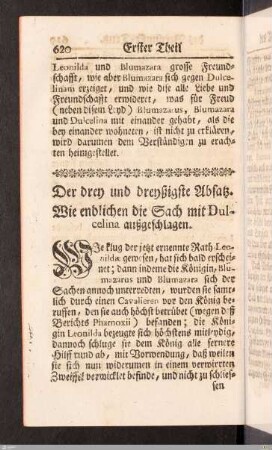 620 Erster Theil
Leonilda und Blumazara grosse Freund-
schafft, wie aber Blumazara sich gegen Dulce-
linam erzeiget, und wie dise alle Liebe und
Freundschafft erwideret, was für Freud
(neben disem Lyd) Blumazarus, Blumazara
und Dulcelina mit einander gehabt, als die
bey einander wohneten, ist nicht zu erklären,
wird darumen dem Verständigen zu erach-
ten heimgestellet.
Der drey und dreyßigste Absatz.
Wie endlichen die Sach mit Dul-
celina außgeschlagen.
WIe klug der jetzt ernennte Rath Leo-
nildæ gewesen, hat sich bald erschei-
net; dann indeme die Königin, Blu-
mazarus und Blumazara sich der
Sachen annoch unterredten, wurden sie sämt-
lich durch einen Cavalieren vor den König be-
ruffen, den sie auch höchst betrübet (wegen deß
Berichts Pharnoxii) befanden; die Köni-
gin Leonilda bezeugte sich höchstens mitleydig,
dannoch schluge sie dem König alle fernere
Hilff rund ab, mit Vorwendung, daß weilen
sie sich nun widerumen in einem verwirrten
Zweiffel verwicklet befinde, und nicht zu schlies-
sen